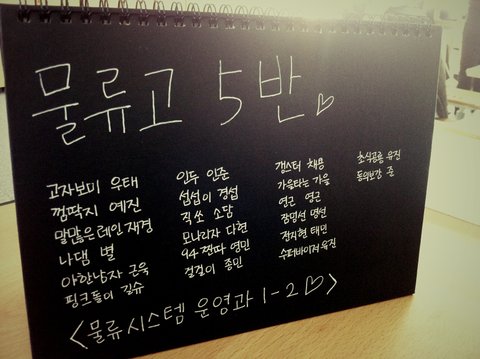 물류고 5반♡
고자보미 우태
껌딱지 예진
말많은레인 재경
나댐 별
아한남자 근욱
핑크돌이 길슈
인두 인준
섭섭이 경섭
직쏘 소담
모나리자 다현
94짼따 연민
걸걸이 종민
갱스터 채용
가을타는 가을
연근 연근
장명선 명선
전지현 태민
수퍼바이저 유진
초식공룡 유진
동의보감 준
<물류시스템 운영과 1-2♡>